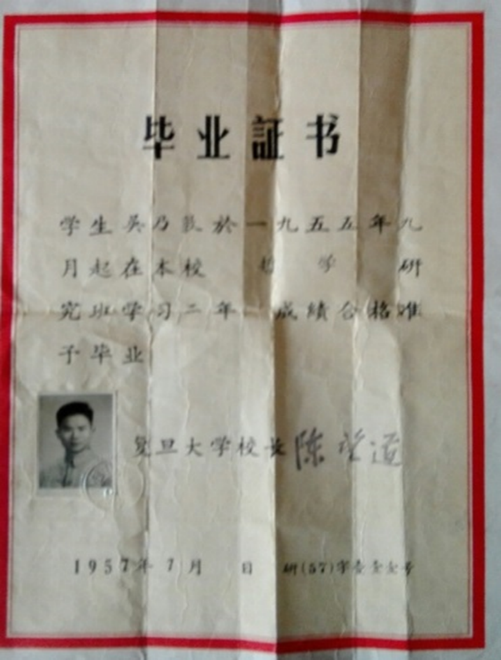 毕业証书
学生吴乃於一九五五年九
月起在本校 哲学 研
究班学习二年 成績合格准
予毕业
复旦大学校长 陈望道
1957年7月 日 研(57)字 号